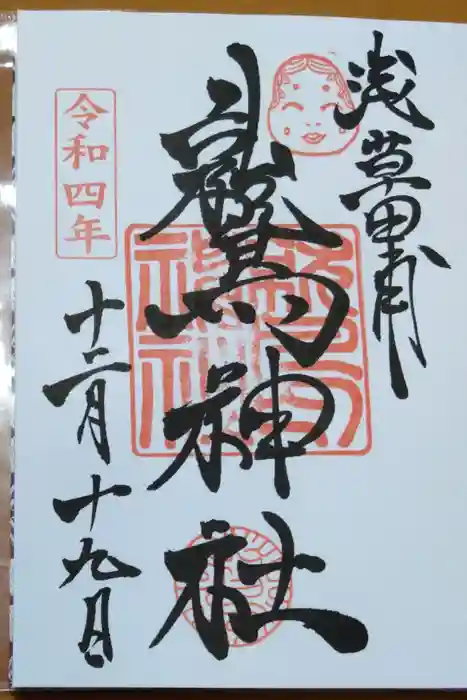 浅草田甫
鷲神社
令和四年
十二月十九日